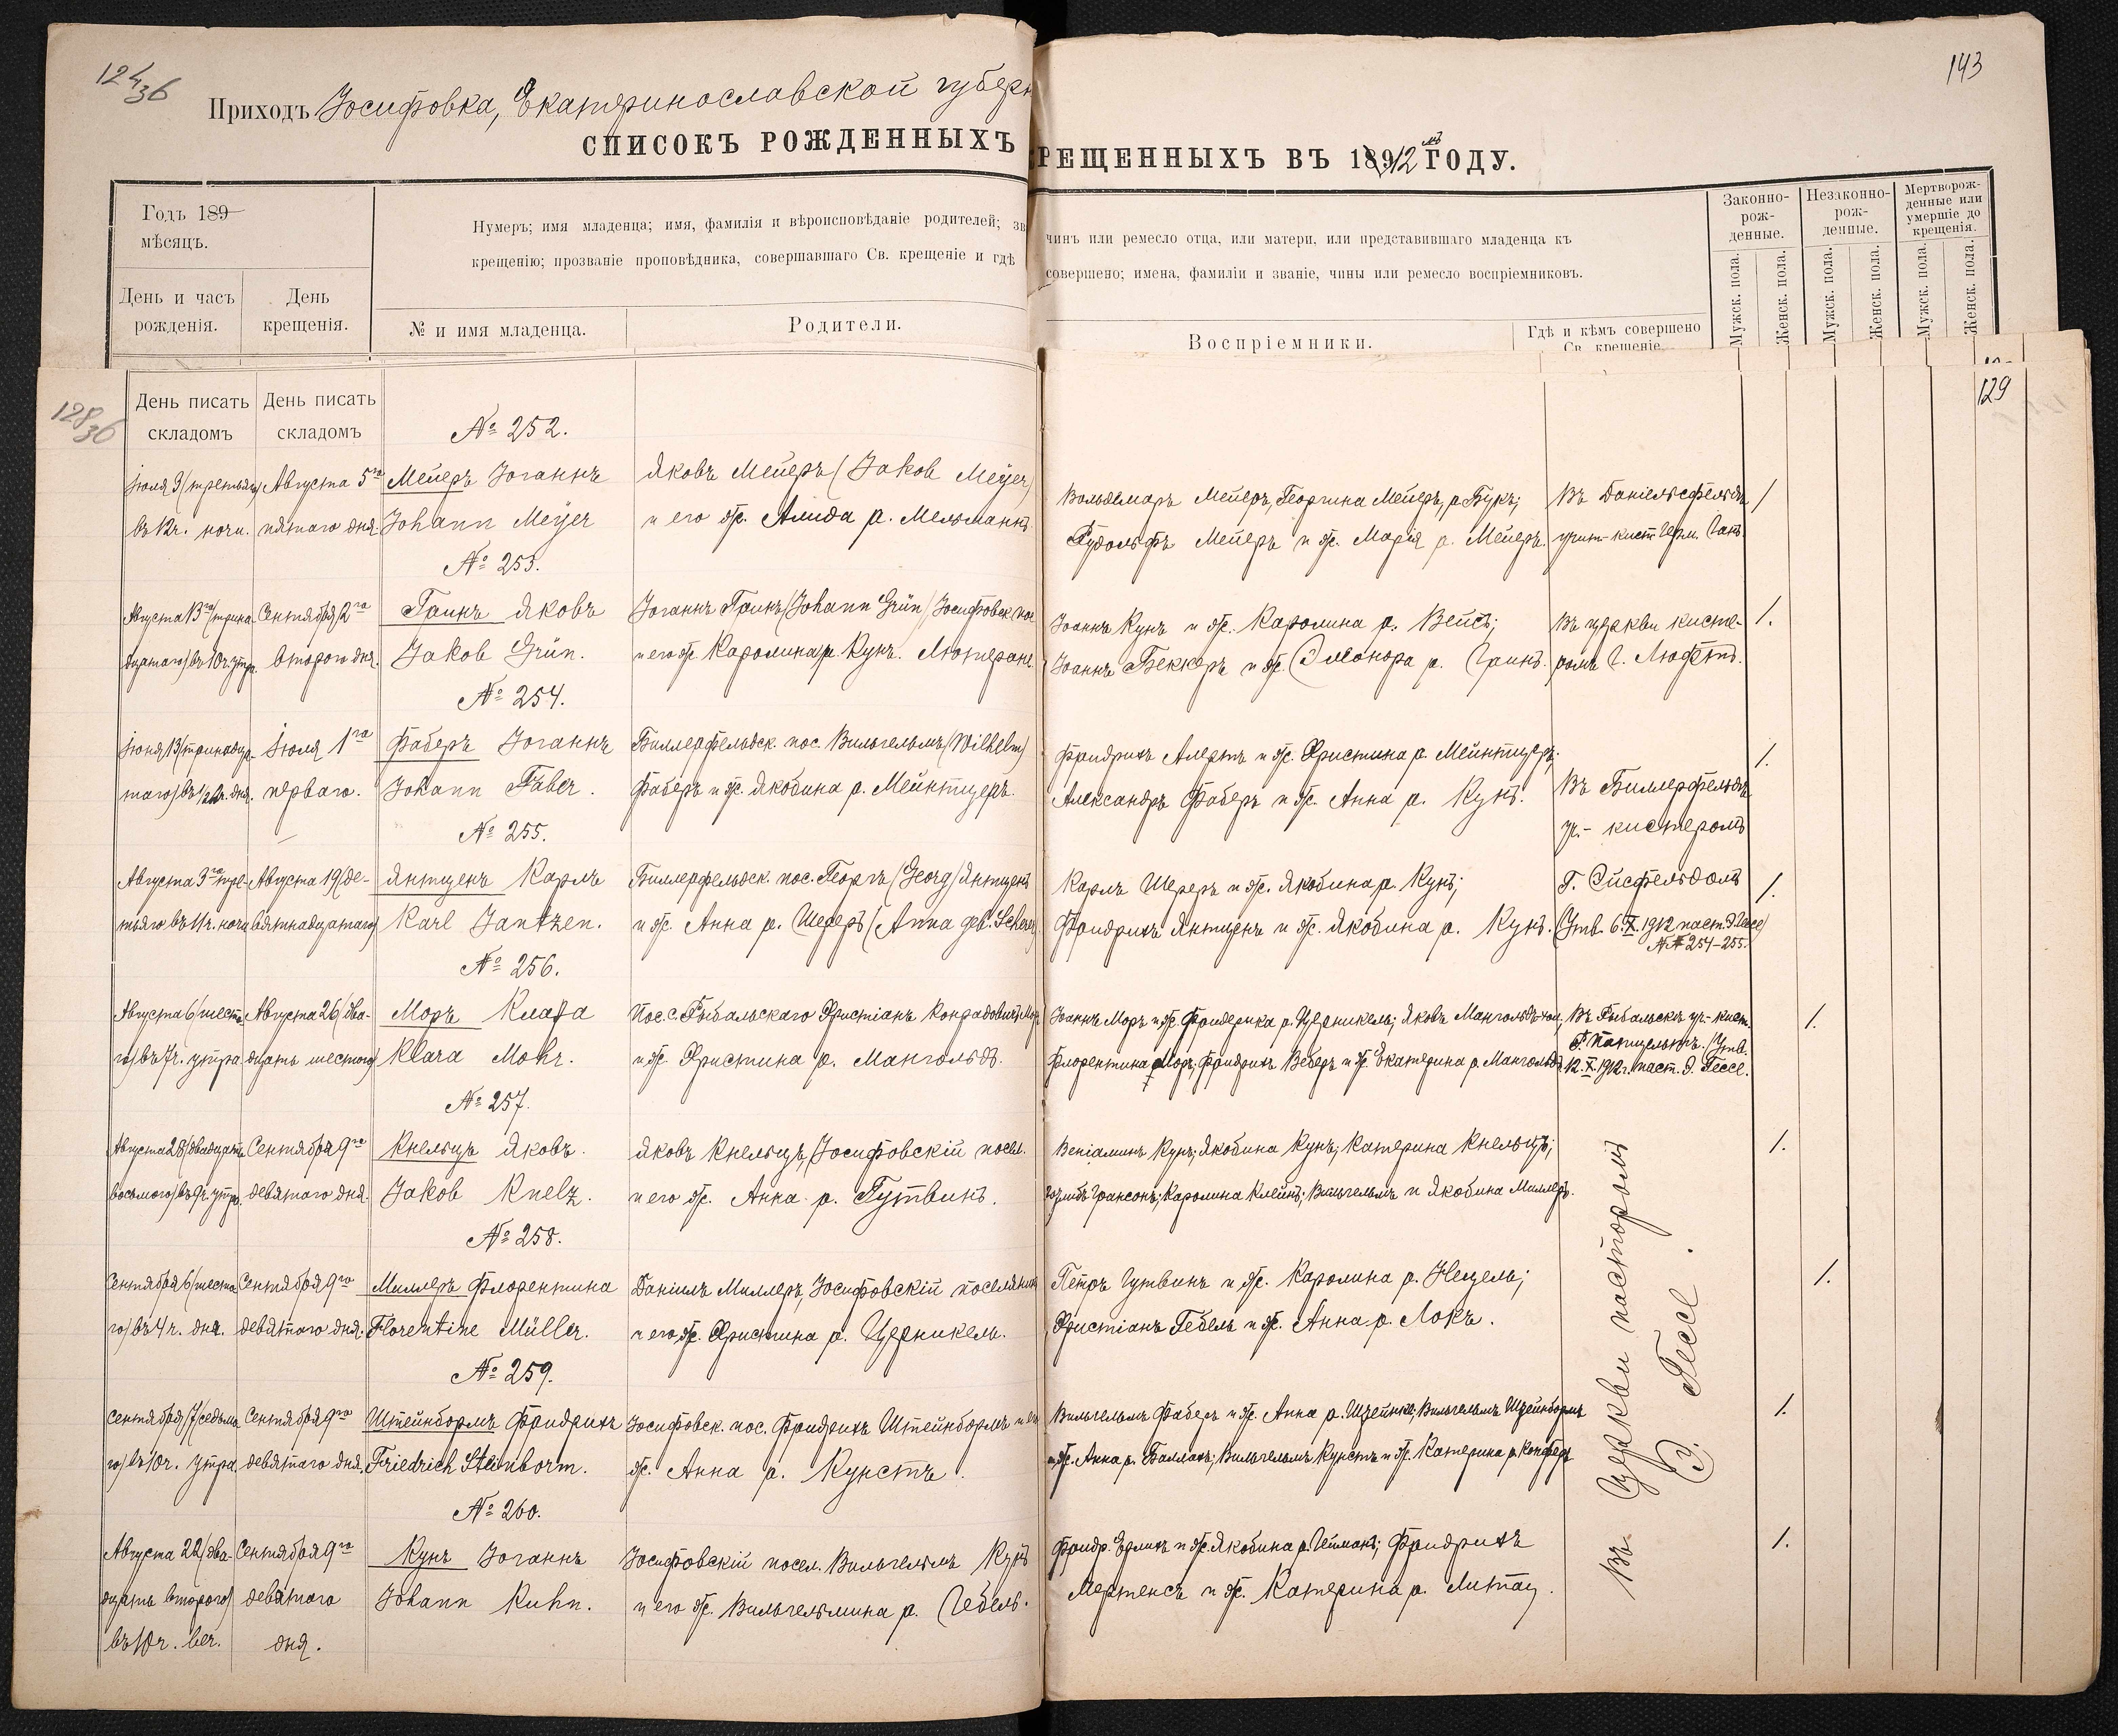 124/36
143
Приходъ Іосифовка, Екатеринославской губерн
СПИСОКЪ РОЖДЕННЫХЪ
РЕЩЕННЫХЪ ВЪ 1912 ГОДУ.
Годъ 189
мѣсяцъ.
День и часъ рожденія.
День крещенія.
Нумеръ; имя младенца; имя, фамилія и вѣроисповѣданіе родителей; зв
крещенію; прозваніе проповѣдника, совершавшаго Св. крещеніе и гдѣ
№ и имя младенца.
Родители.
чинъ или ремесло отца, или матери, или представившаго младенца къ
совершено; имена, фамиліи и званіе, чины или ремесло воспріемниковъ.
Воспріемники.
Гдѣ и кѣмъ совершено
Св. крещеніе.
Законно-рож-денные.
Незаконно-рож-денные.
Мертворож-денные или умершіе до крещенія.
Мужск. пола.
Женск. пола.
Мужск. пола.
Женск. пола.
Мужск. пола
Женск. пола.
128/36
129
День писать складомъ
День писать складомъ
№ 252.
Іюля 3 (третьяго)
въ 12ч. ночи.
Августа 5го
пятаго дня
Мейеръ Іоганнъ
Johann Meÿer
Яковъ Мейеръ (Jakob Meÿer)
и его ж. Алида р. Мельманнъ
Вольдемаръ Мейеръ, Георгина Мейеръ, р. Букъ;
Рудольфъ Мейеръ и ж. Марія р. Мейеръ.
Въ Даніельсфельдѣ
учит-кист. Герм. Ганъ
/
№ 253.
Августа 13го (трина-
дцатаго) въ 10ч. утра.
Сентября 2го
второго дня.
Гринъ Яковъ
Jakob Grün.
Іоганнъ Гринъ (Johann Grün) Іосифовск. пос
и его ж. Каролина р. Кунъ. Лютеране
Іоаннъ Кунъ и ж. Каролина р. Вейсъ;
Іоаннъ Беккеръ и ж. Элеонора р. Гринъ.
Въ церкви кисте-
ромъ Г. Люфтъ.
1.
№ 254.
Іюня 13 (тринадца-
таго) въ 12ч. дня.
Іюля 1го
перваго.
Фаберъ Іоганнъ
Johann Faber.
Биллерфельдск. пос. Вильгельмъ (Wilhelm)
Фаберъ и ж. Якобина р. Мейнтцеръ.
Фридрихъ Алертъ и ж. Христина р. Мейнтцеръ;
Александръ Фаберъ и ж. Анна р. Кунъ.
Въ Биллерфельдѣ
уч.- кистеромъ
1.
№ 255.
Августа 3го тре-
тьяго въ 11ч. ночи
Августа 19 (де-
вятнадцатаго)
Янтценъ Карлъ
Karl Jantzen.
Биллерфельдск. пос. Георгъ (Georg) Янтценъ
и ж. Анна р. Шереръ (Anna дев. Scherer)
Карлъ Шереръ и ж. Якобина р. Кунъ;
Фридрихъ Янтценъ и ж. Якобина р. Кунъ.
Г. Эйсфельдомъ
(Утв. 6.X.1912 паст. Э. Гессе)
№№ 254-255.
1.
№ 256.
Августа 6 (шеста-
го) въ 7ч. утра
Августа 26 (два-
дцать шестого)
Моръ Клара
Klara Mohr.
Пос. с. Рыбальскаго Христіанъ Конрадовичъ Моръ
и ж. Христина р. Мангольдъ.
Іоаннъ Моръ и ж. Фридерика р. Церникель; Яковъ Мангольдъ
Флорентина Моръ; Фридрихъ Веберъ и ж. Екатерина р. Мангольдъ.
Въ Рыбальскѣ уч.-кист.
12.X.1912г. паст. Э. Гессе.
1.
№ 257.
Августа 28 (двадцать
восьмого) въ 9ч. утра.
Сентября 9го
девятаго дня.
Кнельцъ Яковъ.
Jakob Knelz.
Яковъ Кнельцъ, Іосифовскій посел.
и его ж. Анна р. Гутвинъ.
Веніаминъ Кунъ; Якобина Кунъ; Катерина Кнельцъ;
Каролина Клейнъ; Вильгельмъ и Якобина Миллеръ.
1.
№ 258.
Сентября 6 (шеста-
го) въ 4ч. дня.
Сентября 9го
девятаго дня.
Миллеръ Флорентина
Florentine Müller.
Даніилъ Миллеръ, Іосифовскій поселянинъ
и его ж. Христина р. Церникель.
Петръ Гутвинъ и ж. Каролина р. Нецель;
Христіанъ Гебель и ж. Анна р. Локъ.
Въ церкви пасторомъ
Э. Гессе.
1.
№ 259.
Сентября 7 (седьма-
го) въ 10ч. утра
Сентября 9го
девятаго дня.
Штейнбормъ Фридрихъ
Friedrich Steinborm.
Іосифовск. пос. Фридрихъ Штейнбормъ и его
ж. Анна р. Кунстъ.
Вильгельмъ Фаберъ и ж. Анна р. Штейнке; Вильгельмъ Штейнбормъ
и ж. Анна р. Баллахъ; Вильгельмъ Кунстъ и ж. Катерина р.
1.
№ 260.
Августа 22 (два-
дцать второго)
въ 10ч. веч.
Сентября 9го
девятаго
дня.
Кунъ Іоганнъ
Johann Kuhn.
Іосифовскій посел. Вильгельмъ Кунъ
и его ж. Вильгельмина р. Гебель.
Фридр. Эрлихъ и ж. Якобина р. Гейманъ; Фридрихъ
Мертенсъ и ж. Катерина р. Литтау.
1.